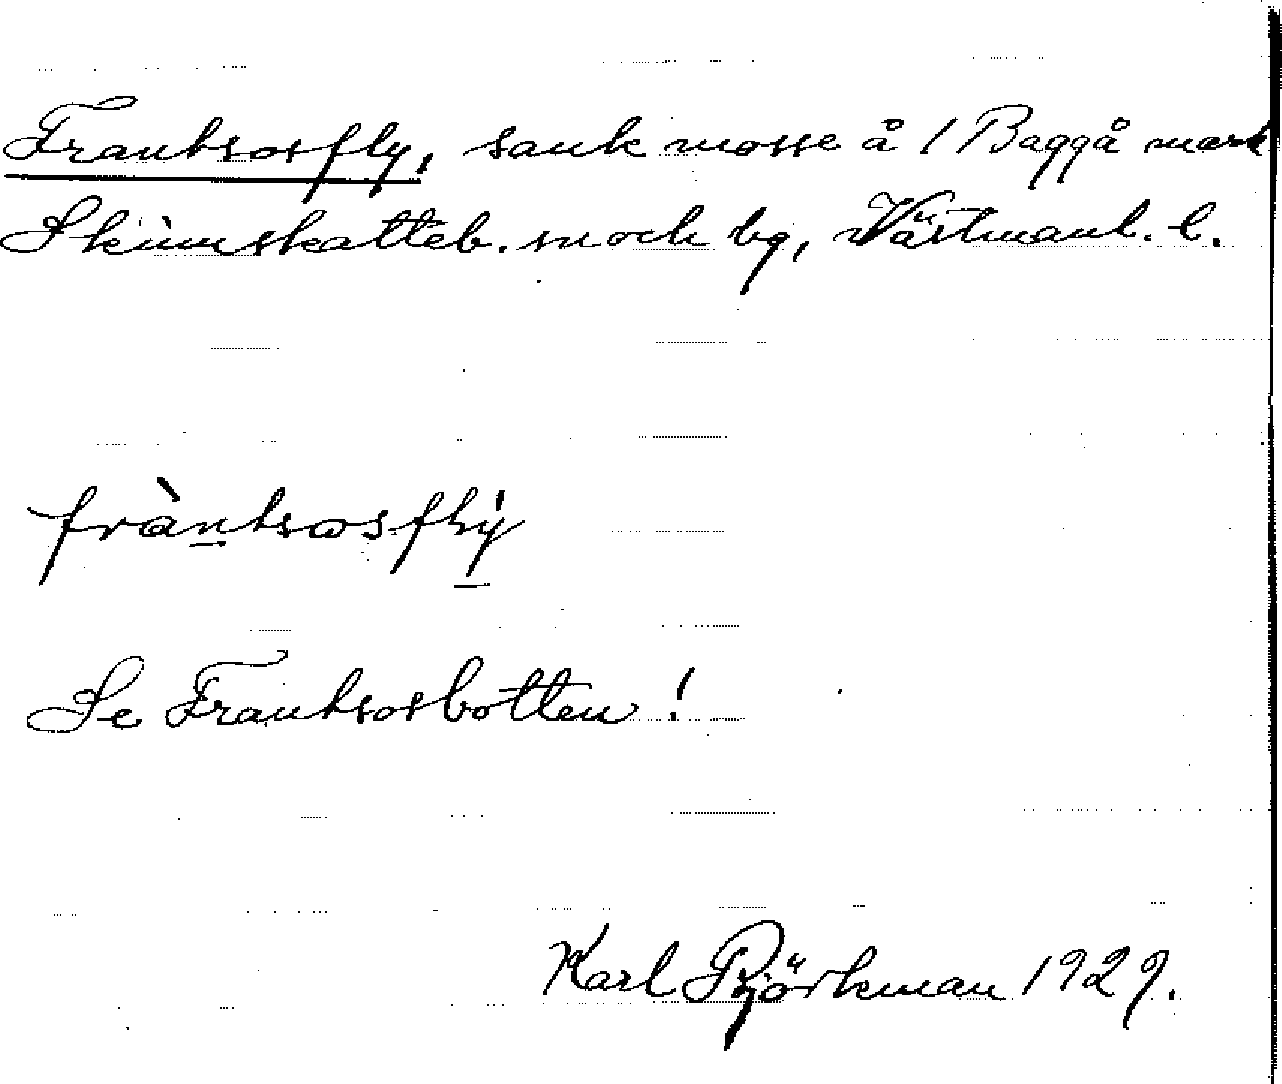 Frantsosfly, sank mosse å / Baggå mark
Skinnskatteb. sn och bg, Västmanl. l.
fràntsosflý
Se Frantsosbotten!
Karl Björkman 1929.